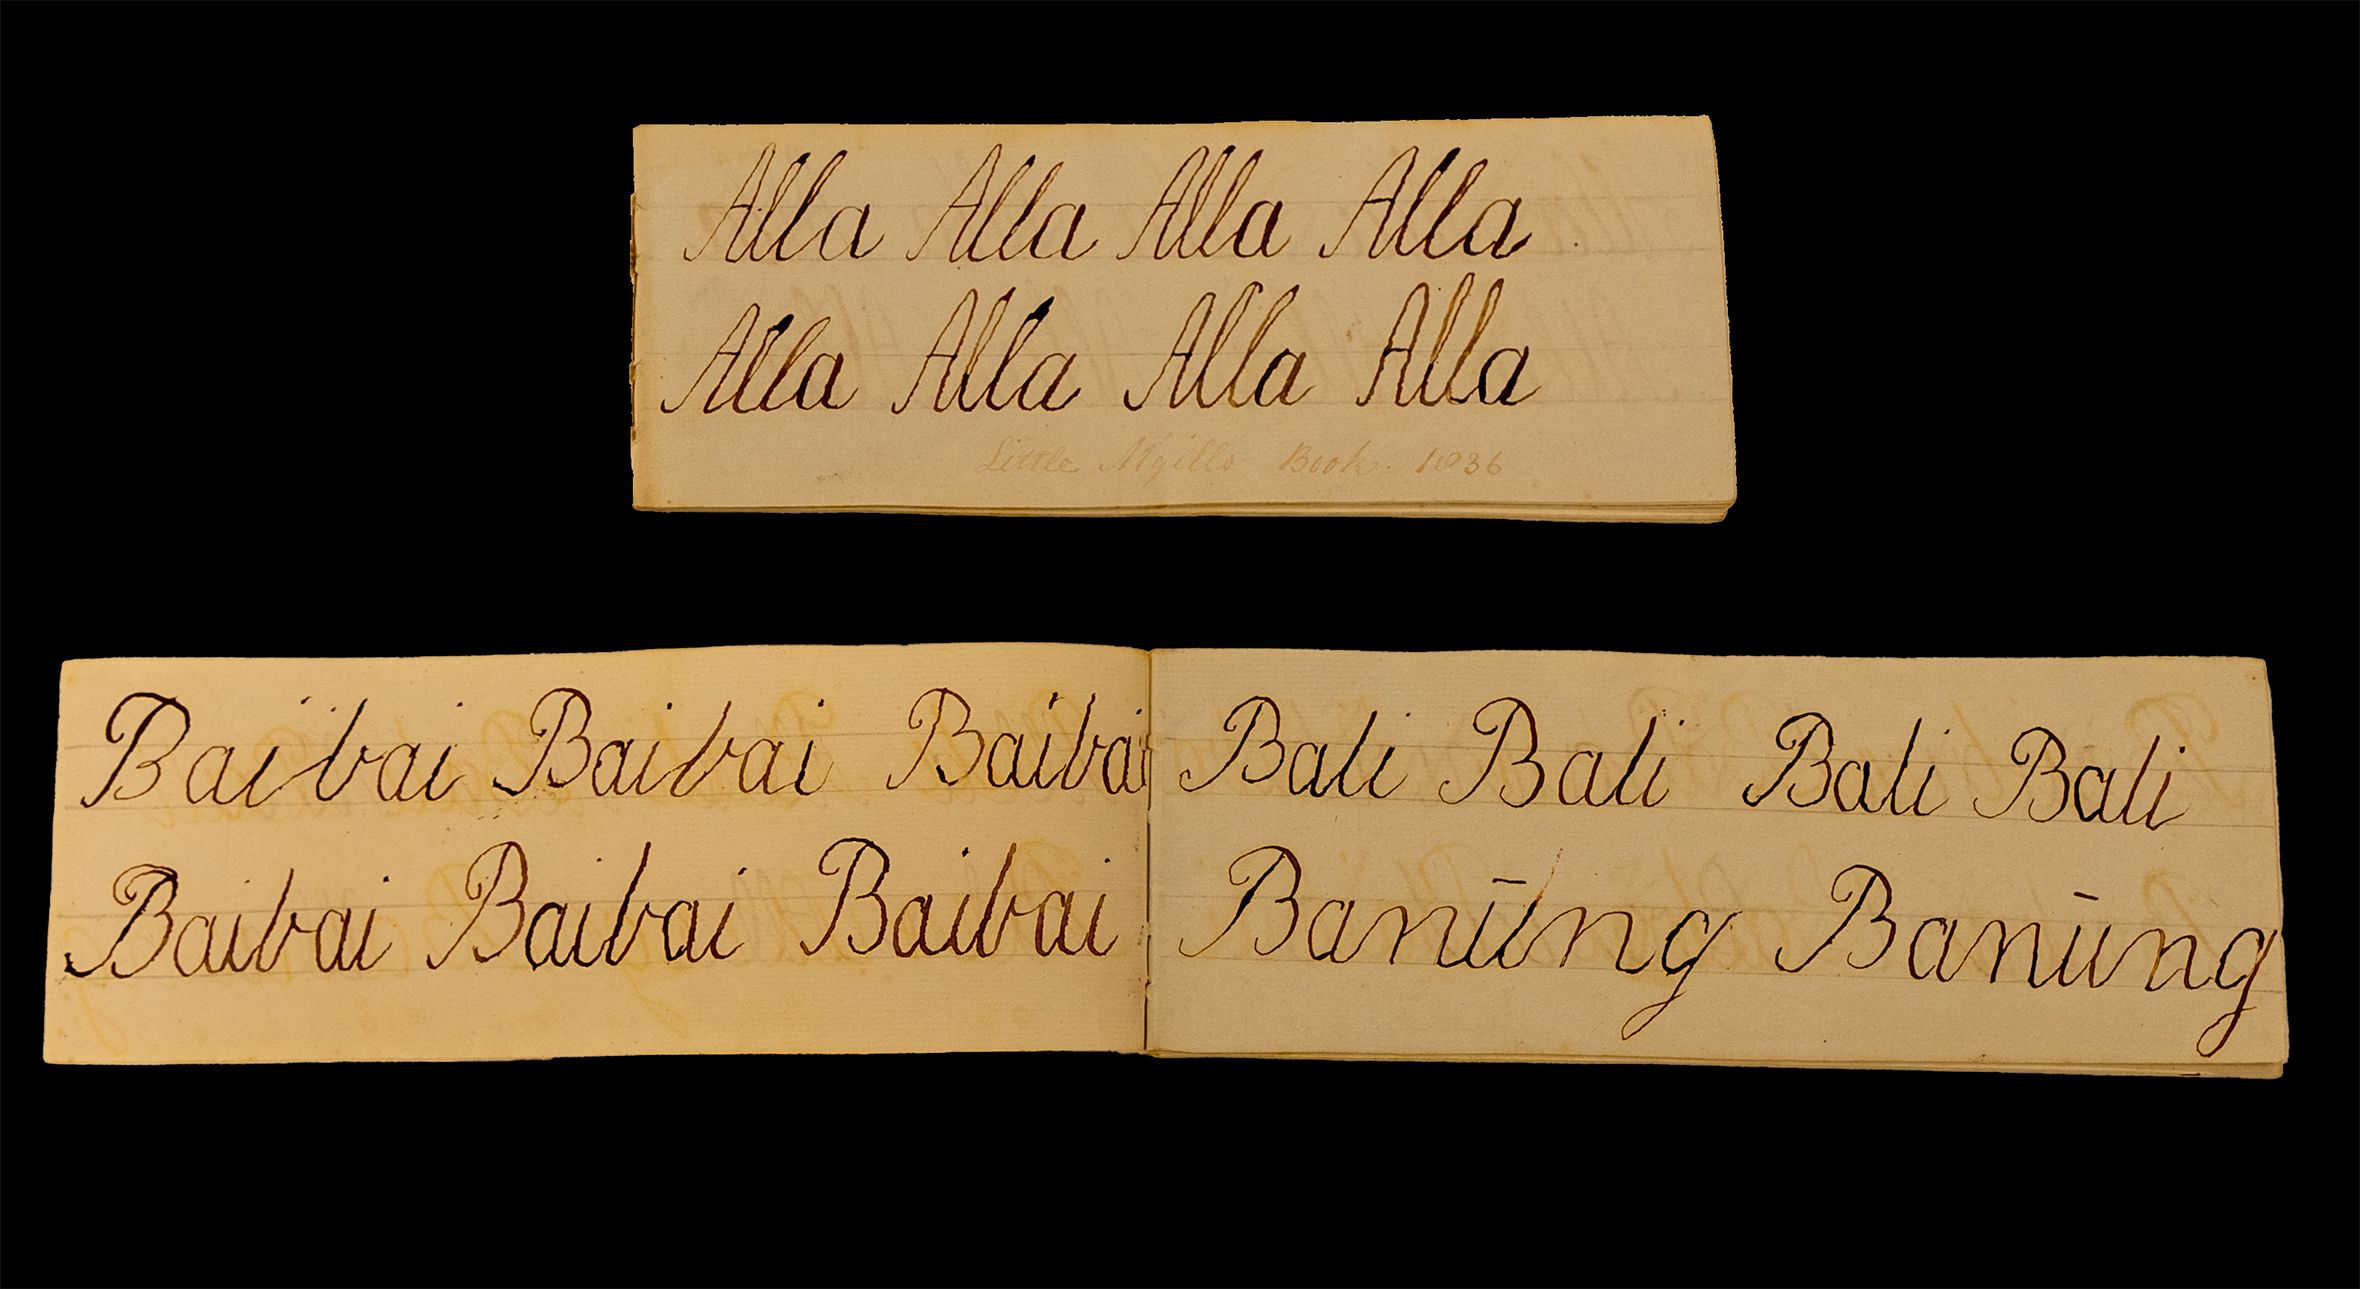 Alla Alla Alla Alla
Alla Alla Alla Alla
Little Mgillo Book 1836
Baibai Baibai Baibai
Baibai Baibai Baibai
Bali Bali Bali Bali
Banūng Banūng